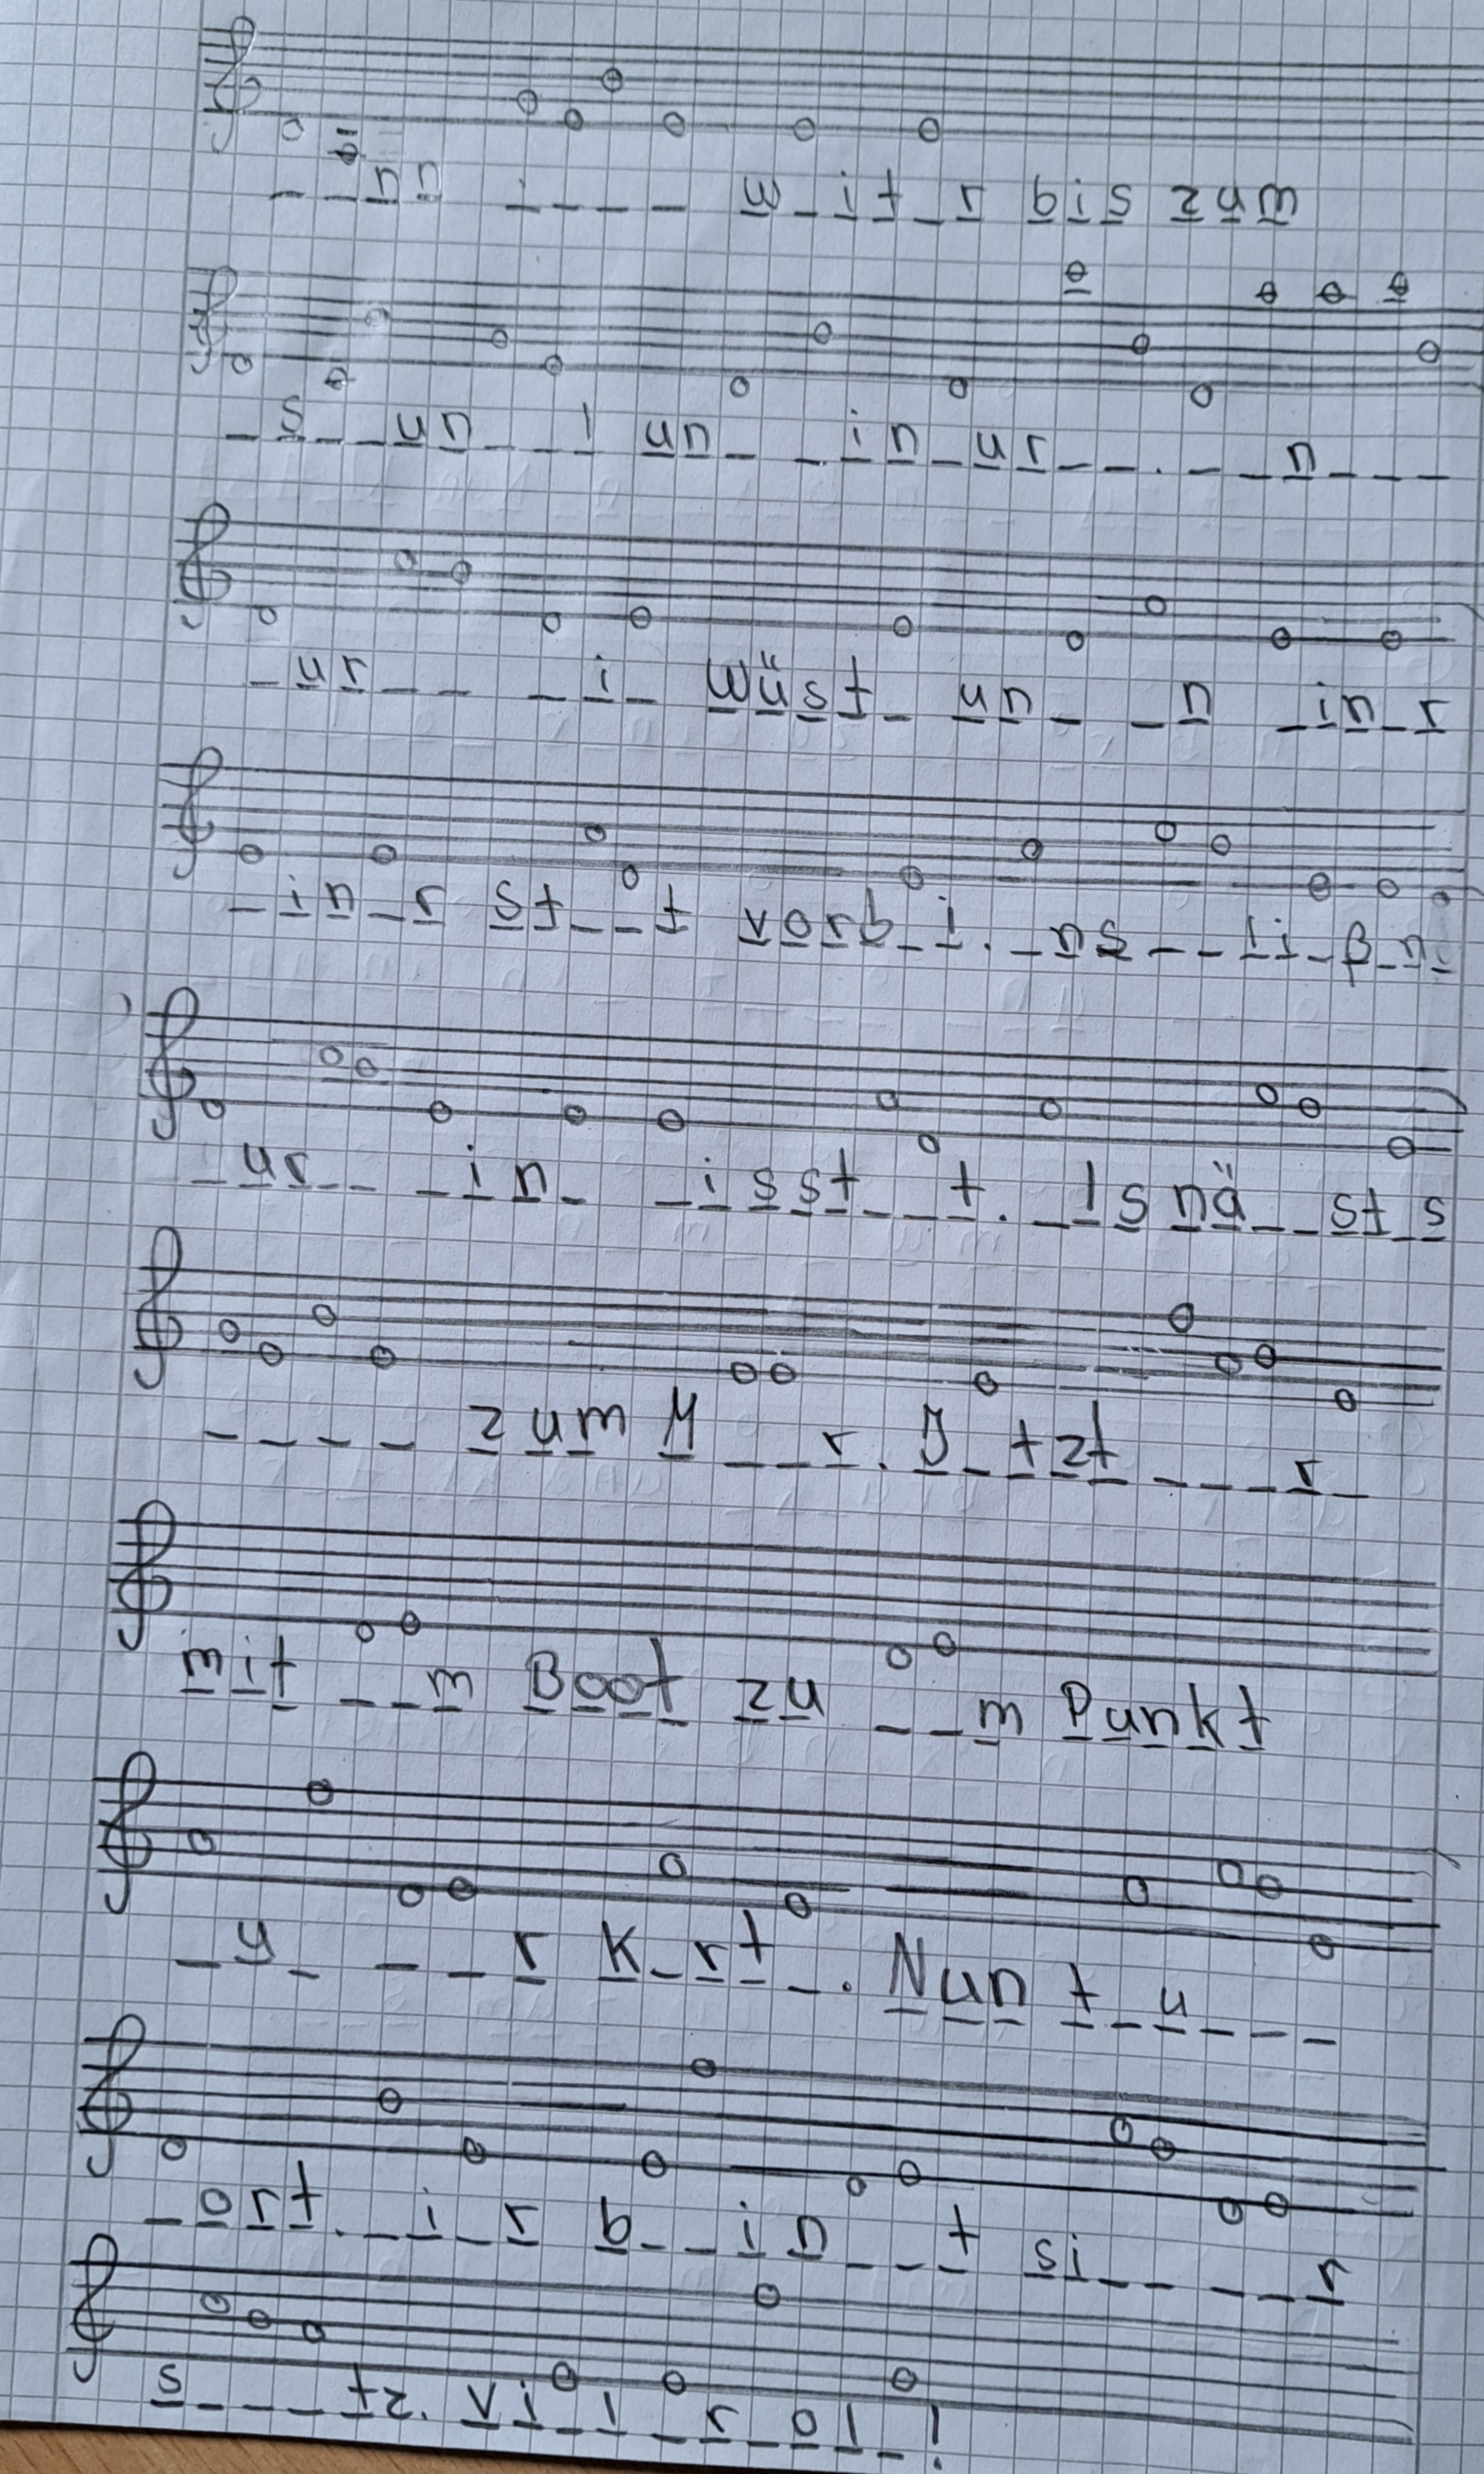 _ _ u n _ _ _ _ m _ i t _ r g i s z u m
_ s _ _ u n _ _ l u n _ _ i n _ u r _ _ . _ _ _ n _ _ _
_ u r _ _ _ i _ W ü s t _ u n _ _ n _ i n _ r
_ i n _ r S t _ _ t v o r b _ i . _ n s _ _ l i _ ß _ n _
_ u r _ _ _ i n _ _ i s s t _ _ t . _ l s n ä _ _ s t _ s
_ _ _ _ z u m M _ _ r . J _ t z t _ _ _ r _
m i t _ _ m B o o t z u _ _ m P u n k t
_ u _ _ _ r K _ r t _ . N u n t _ u _ _ _
_ o r t . _ i _ r g _ _ i n _ _ t s i _ _ _ _ r
s _ _ _ t z . V i _ l _ r _ o l _ !